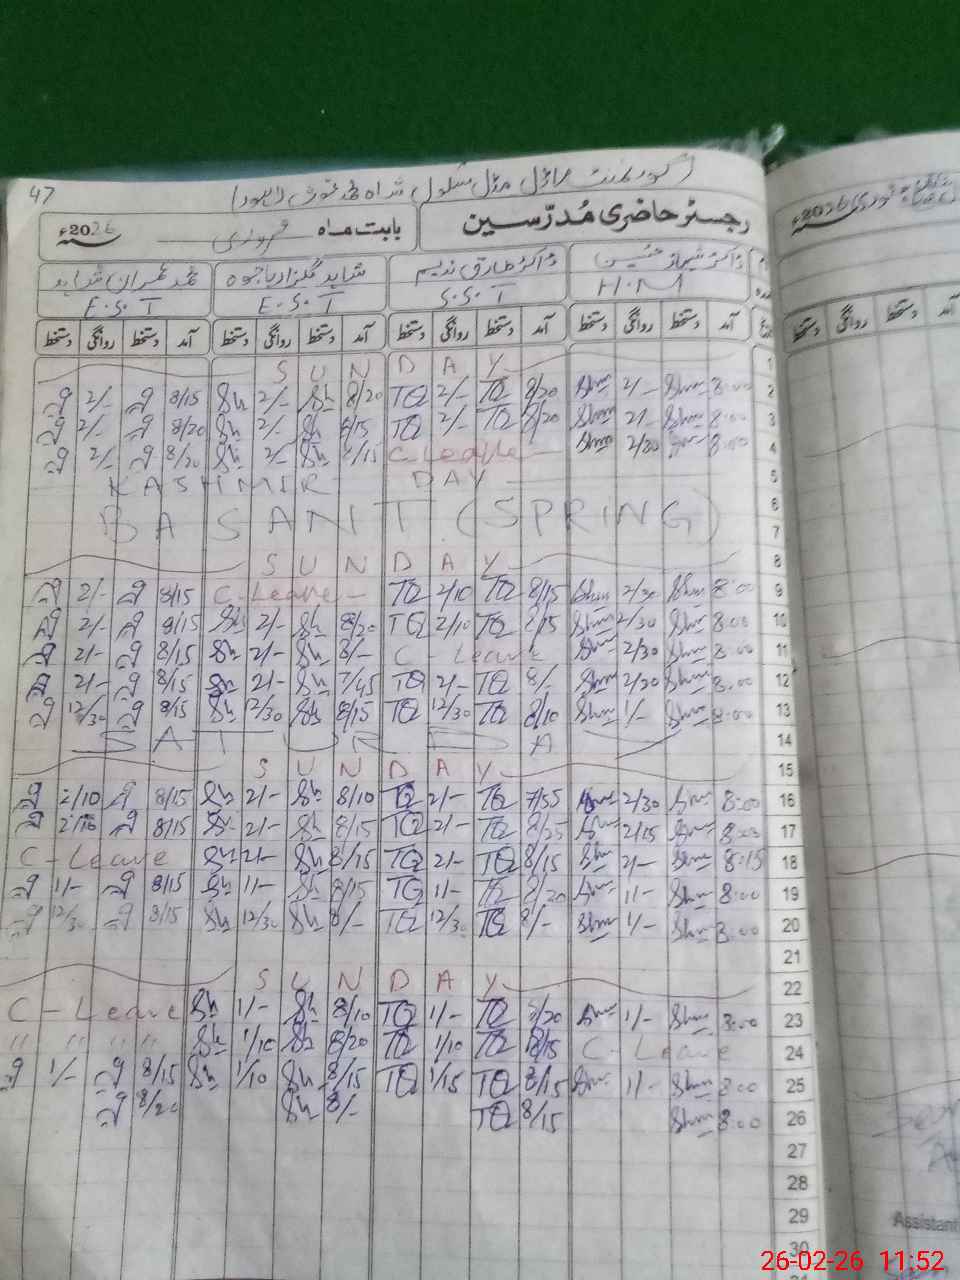 47
(گورنمنٹ ماڈل مڈل سکول شاہ محمد غوث لاہور)
رجسٹر حاضری مُدرّسین
بابت ماہ فروری 2026ء
ڈاکٹر شیراز حسنین ڈاکٹر طارق ندیم شاہد گلزار باجوہ محمد عمران شاہد
H.M S.S.T E.S.T E.S.T
آمد دستخط روانگی دستخط آمد دستخط روانگی دستخط آمد دستخط روانگی دستخط آمد دستخط روانگی دستخط
1 SUNDAY
2/- 8/15 Sh 2/- Sh 8/20 TQ 2/- TQ 8/20 Shm 2/- Shm 8:00 2
2/- 8/20 Sh 2/- Sh 8/15 TQ 2/- TQ 8/20 Shm 2/- Shm 8:00 3
2/- 8/20 Sh 2/- Sh 8/15 C-Leave Shm 2/30 Shm 8:00 4
KASHMIR DAY 5
6
BASANT (SPRING) 7
SUNDAY 8
2/- 8/15 C-Leave TQ 2/10 TQ 8/15 Shm 2/30 Shm 8:00 9
2/- 8/15 Sh 2/- Sh 8/20 TQ 2/10 TQ 8/15 Shm 2/30 Shm 8:00 10
2/- 8/15 Sh 2/- Sh 8/- C-Leave Shm 2/30 Shm 8:00 11
2/- 8/15 Sh 2/- Sh 7/45 TQ 2/- TQ 8/- Shm 2/20 Shm 8:00 12
12/30 8/15 Sh 12/30 Sh 8/15 TQ 12/30 TQ 8/10 Shm 1/- Shm 8:00 13
SATURDAY 14
SUNDAY 15
2/10 8/15 Sh 2/- Sh 8/10 TQ 2/- TQ 7/55 Shm 2/30 Shm 8:00 16
2/10 8/15 Sh 2/- Sh 8/15 TQ 2/- TQ 8/25 Shm 2/15 Shm 8:03 17
C-Leave Sh 2/- Sh 8/15 TQ 2/- TQ 8/15 Shm 2/- Shm 8:15 18
1/- 8/15 Sh 1/- Sh 8/15 TQ 1/- TQ 8/20 Shm 1/- Shm 8:00 19
12/30 8/15 Sh 12/30 Sh 8/- TQ 12/30 TQ 8/- Shm 1/- Shm 8:00 20
21
SUNDAY 22
C-Leave Sh 1/- Sh 8/10 TQ 1/- TQ 8/20 Shm 1/- Shm 8:00 23
" " " " Sh 1/10 Sh 8/20 TQ 1/10 TQ 8/15 C-Leave 24
1/- 8/15 Sh 1/10 Sh 8/15 TQ 1/15 TQ 8/15 Shm 1/- Shm 8:00 25
8/20 Sh 8/- TQ 8/15 Shm 8:00 26
27
28
29
30
2026ء فروری
دستخط روانگی دستخط آمد
Assistant
26-02-26 11:52